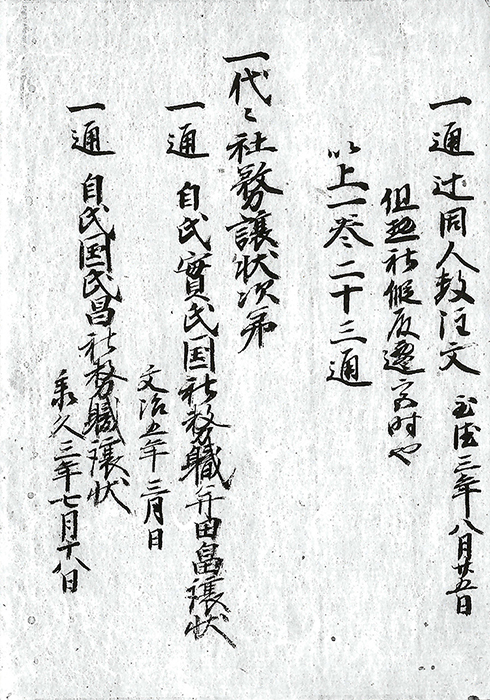 一通 辻固人数注文 至徳三年八月廿五日
但 社假殿遷宮時也
以上一巻二十三通
一代々社務譲状次第
一通 自氏實氏国社務職并田畠譲状
文治五年三月日
一通 自氏国氏昌社務職譲状
承久三年七月十八日